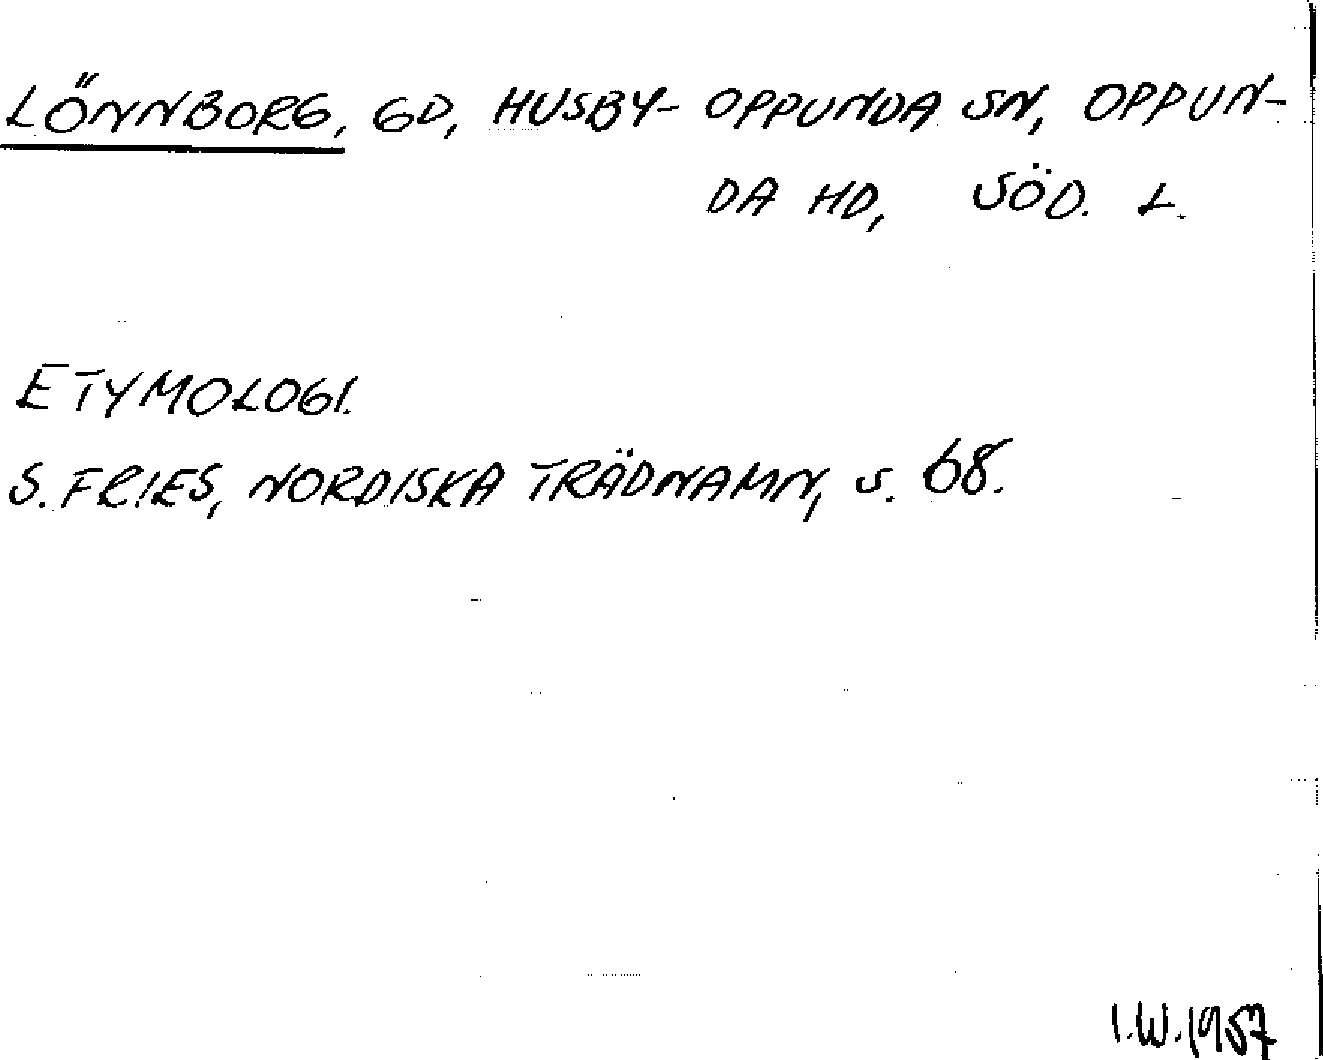 LÖNNBORG, GD, HUSBY-OPPUNDA SN, OPPUN-
DA HD, SÖD. L.
ETYMOLOGI.
S. FRIES, NORDISKA TRÄDNAMN, S. 68.
I.W. 1957